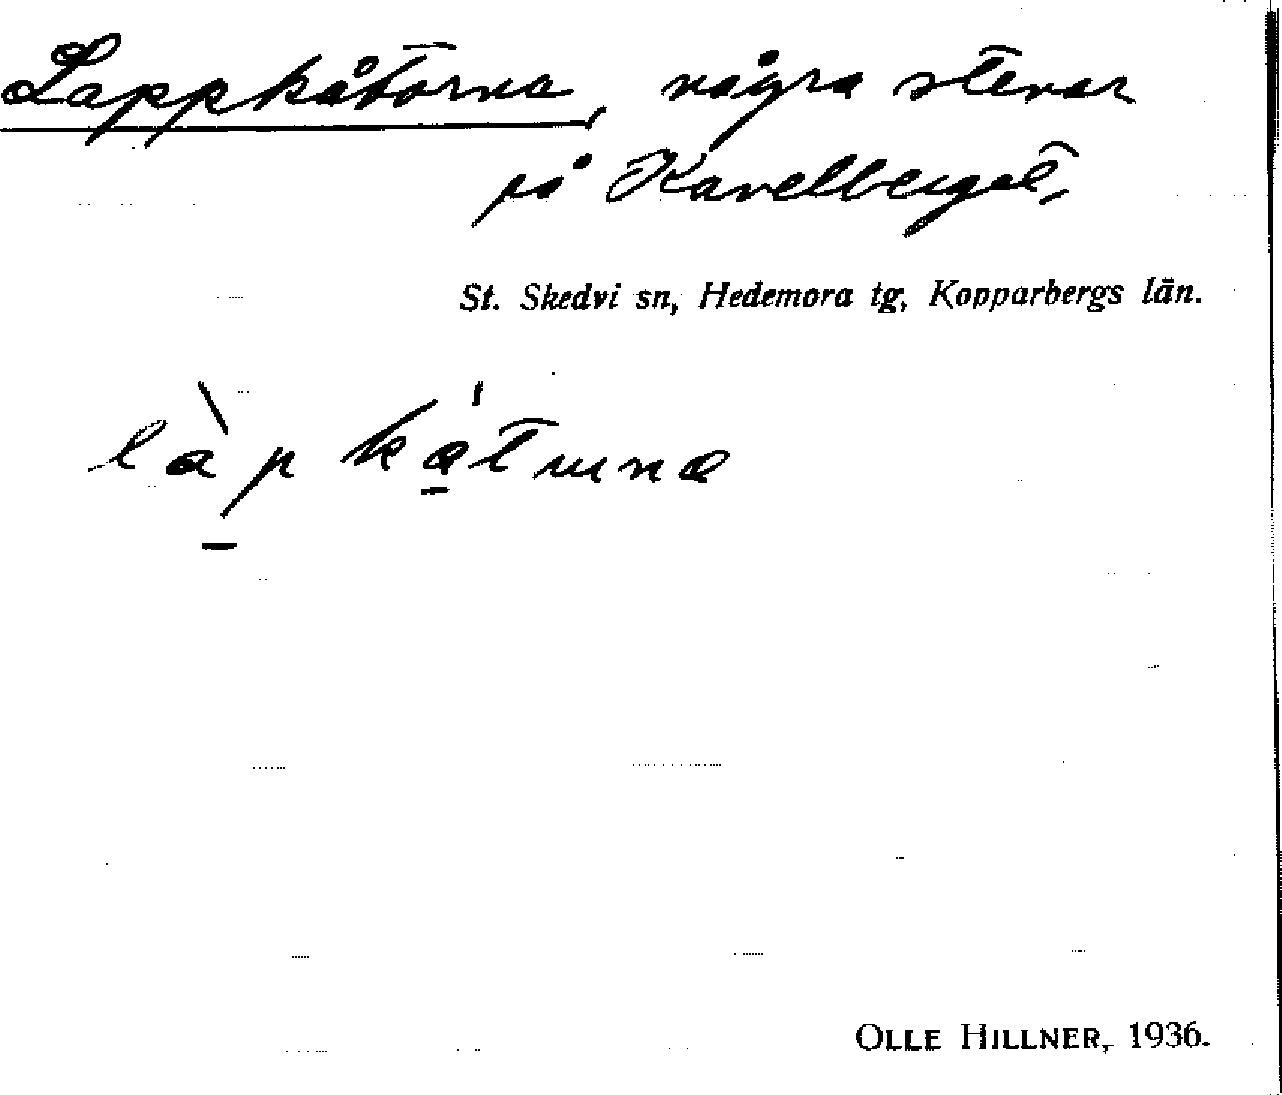 Lappkåtorna, några stenar
på Kavelberget,
St. Skedvi sn, Hedemora tg, Kopparbergs län.
OLLE HILLNER, 1936.